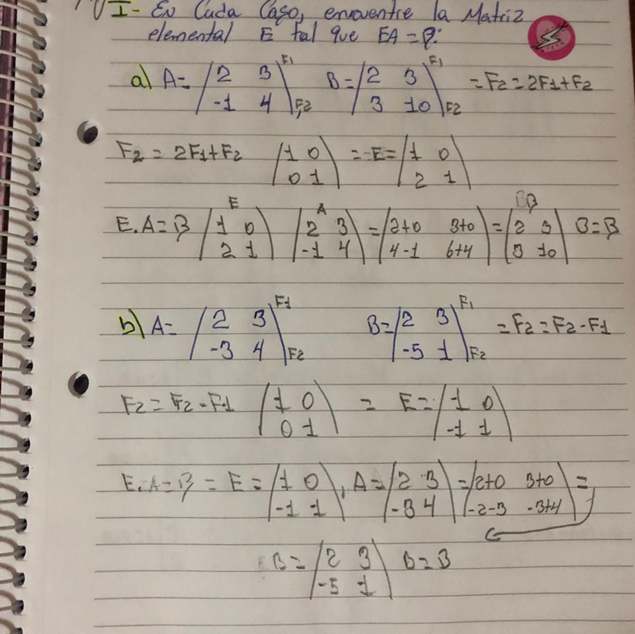 I- En Cada Caso, encuentre la Matriz
elemental E tal que EA=B:
a) A= |2 3 -1 4| F1 F2 B= |2 3 3 10| F1 F2 = F2 = 2F1+F2
F2 = 2F1+F2 |1 0 0 1| = E= |1 0 2 1|
E.A=B E |1 0 2 1| A |2 3 -1 4| = |2+0 3+0 4-1 6+4| = B |2 3 3 10| B=B
b) A= |2 3 -3 4| F1 F2 B= |2 3 -5 1| F1 F2 = F2 = F2-F1
F2 = F2-F1 |1 0 0 1| = E= |1 0 -1 1|
E.A=B = E = |1 0 -1 1| , A= |2 3 -3 4| = |2+0 3+0 -2-3 -3+4| =
B= |2 3 -5 1| B=B